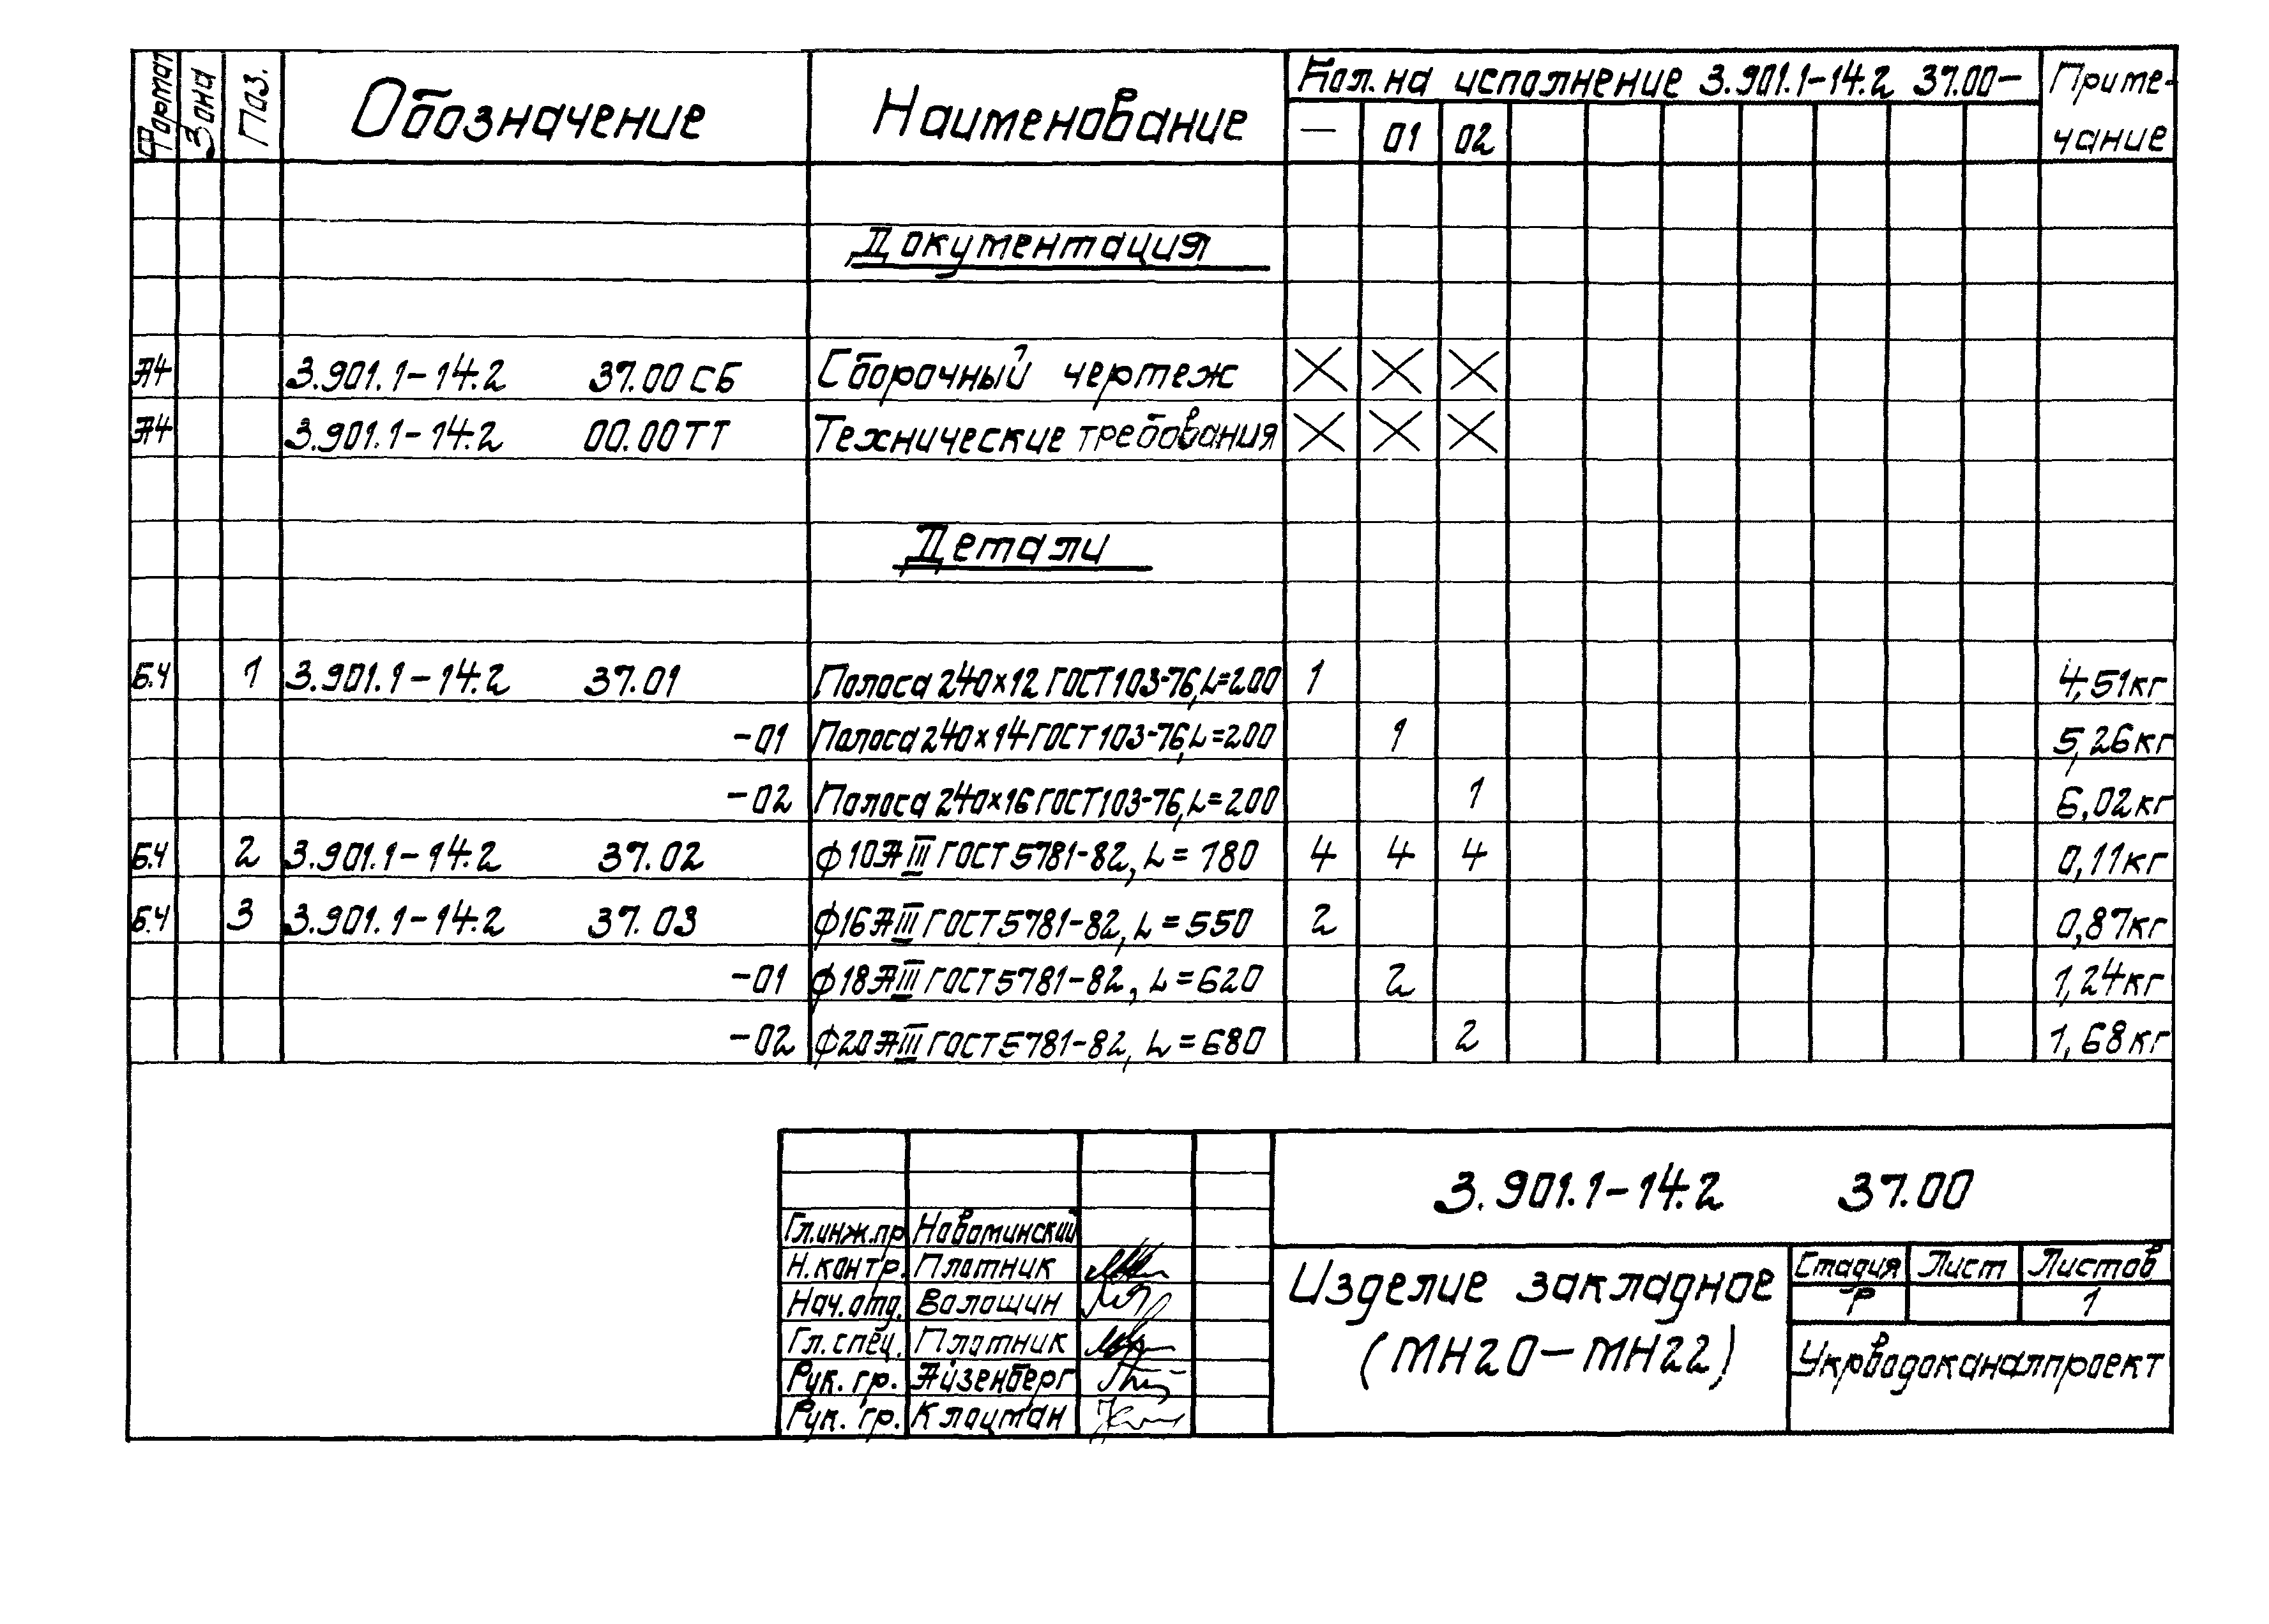 Формат Зона Поз. Обозначение Наименование Кол. на исполнение 3.901.1-14.2 37.00- Приме-
чание
— 01 02
Документация
А4 3.901.1-14.2 37.00 СБ Сборочный чертеж
А4 3.901.1-14.2 00.00 ТТ Технические требования
Детали
Б.Ч 1 3.901.1-14.2 37.01 Полоса 240×12 ГОСТ 103-76, L=200 1 4,51кг
-01 Полоса 240×14 ГОСТ 103-76, L=200 1 5,26кг
-02 Полоса 240×16 ГОСТ 103-76, L=200 1 6,02кг
Б.Ч 2 3.901.1-14.2 37.02 ф10АIII ГОСТ 5781-82, L=180 4 4 4 0,11кг
Б.Ч 3 3.901.1-14.2 37.03 ф16АIII ГОСТ 5781-82, L=550 2 0,87кг
-01 ф18АIII ГОСТ 5781-82, L=620 2 1,24кг
-02 ф20АIII ГОСТ 5781-82, L=680 2 1,68кг
3.901.1-14.2 37.00
Гл.инж.пр Новоминский
Н.контр. Плотник
Нач.отд. Волошин
Гл.спец. Плотник
Рук. гр. Айзенберг
Рук. гр. Клоцман
Изделие закладное
(МН20-МН22)
Стадия Лист Листов
Р 1
Укрводоканалпроект